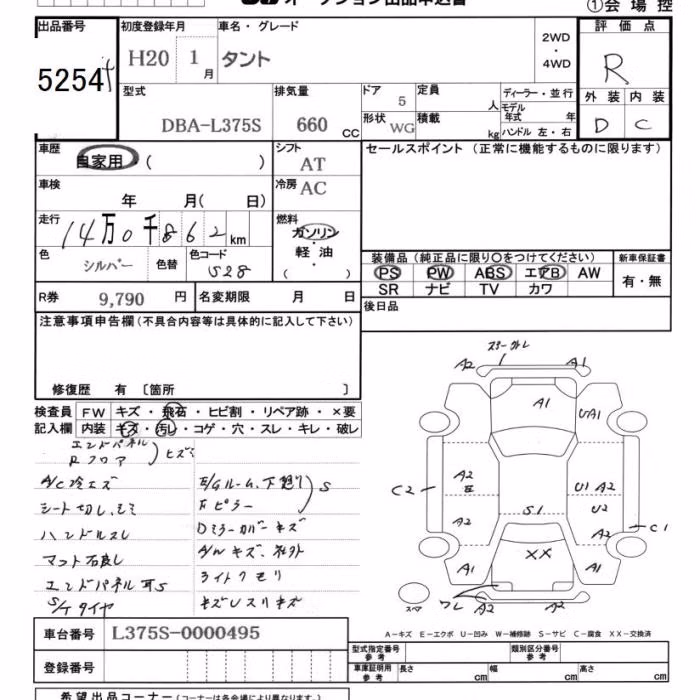 オークション出品申込書
①会場控
出品番号
5254
初度登録年月
H20 1月
車名・グレード
タント
2WD
・
4WD
評価点
R
外装 内装
D C
型式
DBA-L375S
排気量
660 CC
ドア 5
形状 WG
定員 人
積載 kg
ディーラー・並行
モデル年式 年
ハンドル 左・右
車歴
自家用 ( )
シフト
AT
車検
年 月( 日)
冷房 AC
走行
14万0千862km
燃料
ガソリン
・
軽油
( )
色 シルバー
色替
色コード
S28
R券 9,790 円
名変期限 月 日
セールスポイント (正常に機能するものに限ります)
装備品 (純正品に限り○をつけてください)
PS PW ABS エアB AW
SR ナビ TV カワ
新車保証書
有・無
後日品
注意事項申告欄(不具合内容等は具体的に記入して下さい)
修復歴 有 〔箇所 〕
検査員記入欄
FW キズ・飛石・ヒビ割・リペア跡・×要
内装 キズ・汚レ・コゲ・穴・スレ・キレ・破レ
エンドパネル
Rフロア
ヒズミ
A/C冷エズ
シート切レ、シミ
ハンドルスレ
マット石良し
エンドパネル耳S
S/Tタイヤ
E/Gルーム、下廻り
Fピラー
S
Dミラーカバーキズ
A/Wキズ、社外
ライトクモリ
キズUスリキズ
A2 A1
A1 UA1
C2
A2
E
U1 A2
A2 S1 U2
A2 C1
A1 XX A1
ワレ A2 A2
スマ
A-キズ E-エクボ U-凹み W-補修跡 S-サビ C-腐食 XX-交換済
車台番号 L375S-0000495
登録番号
型式指定番号
参考
類別区分番号
参考
車庫証明用
参考
長さ cm
幅 cm
高さ cm
希望出品コーナー (コーナーは各会場により異なります。)